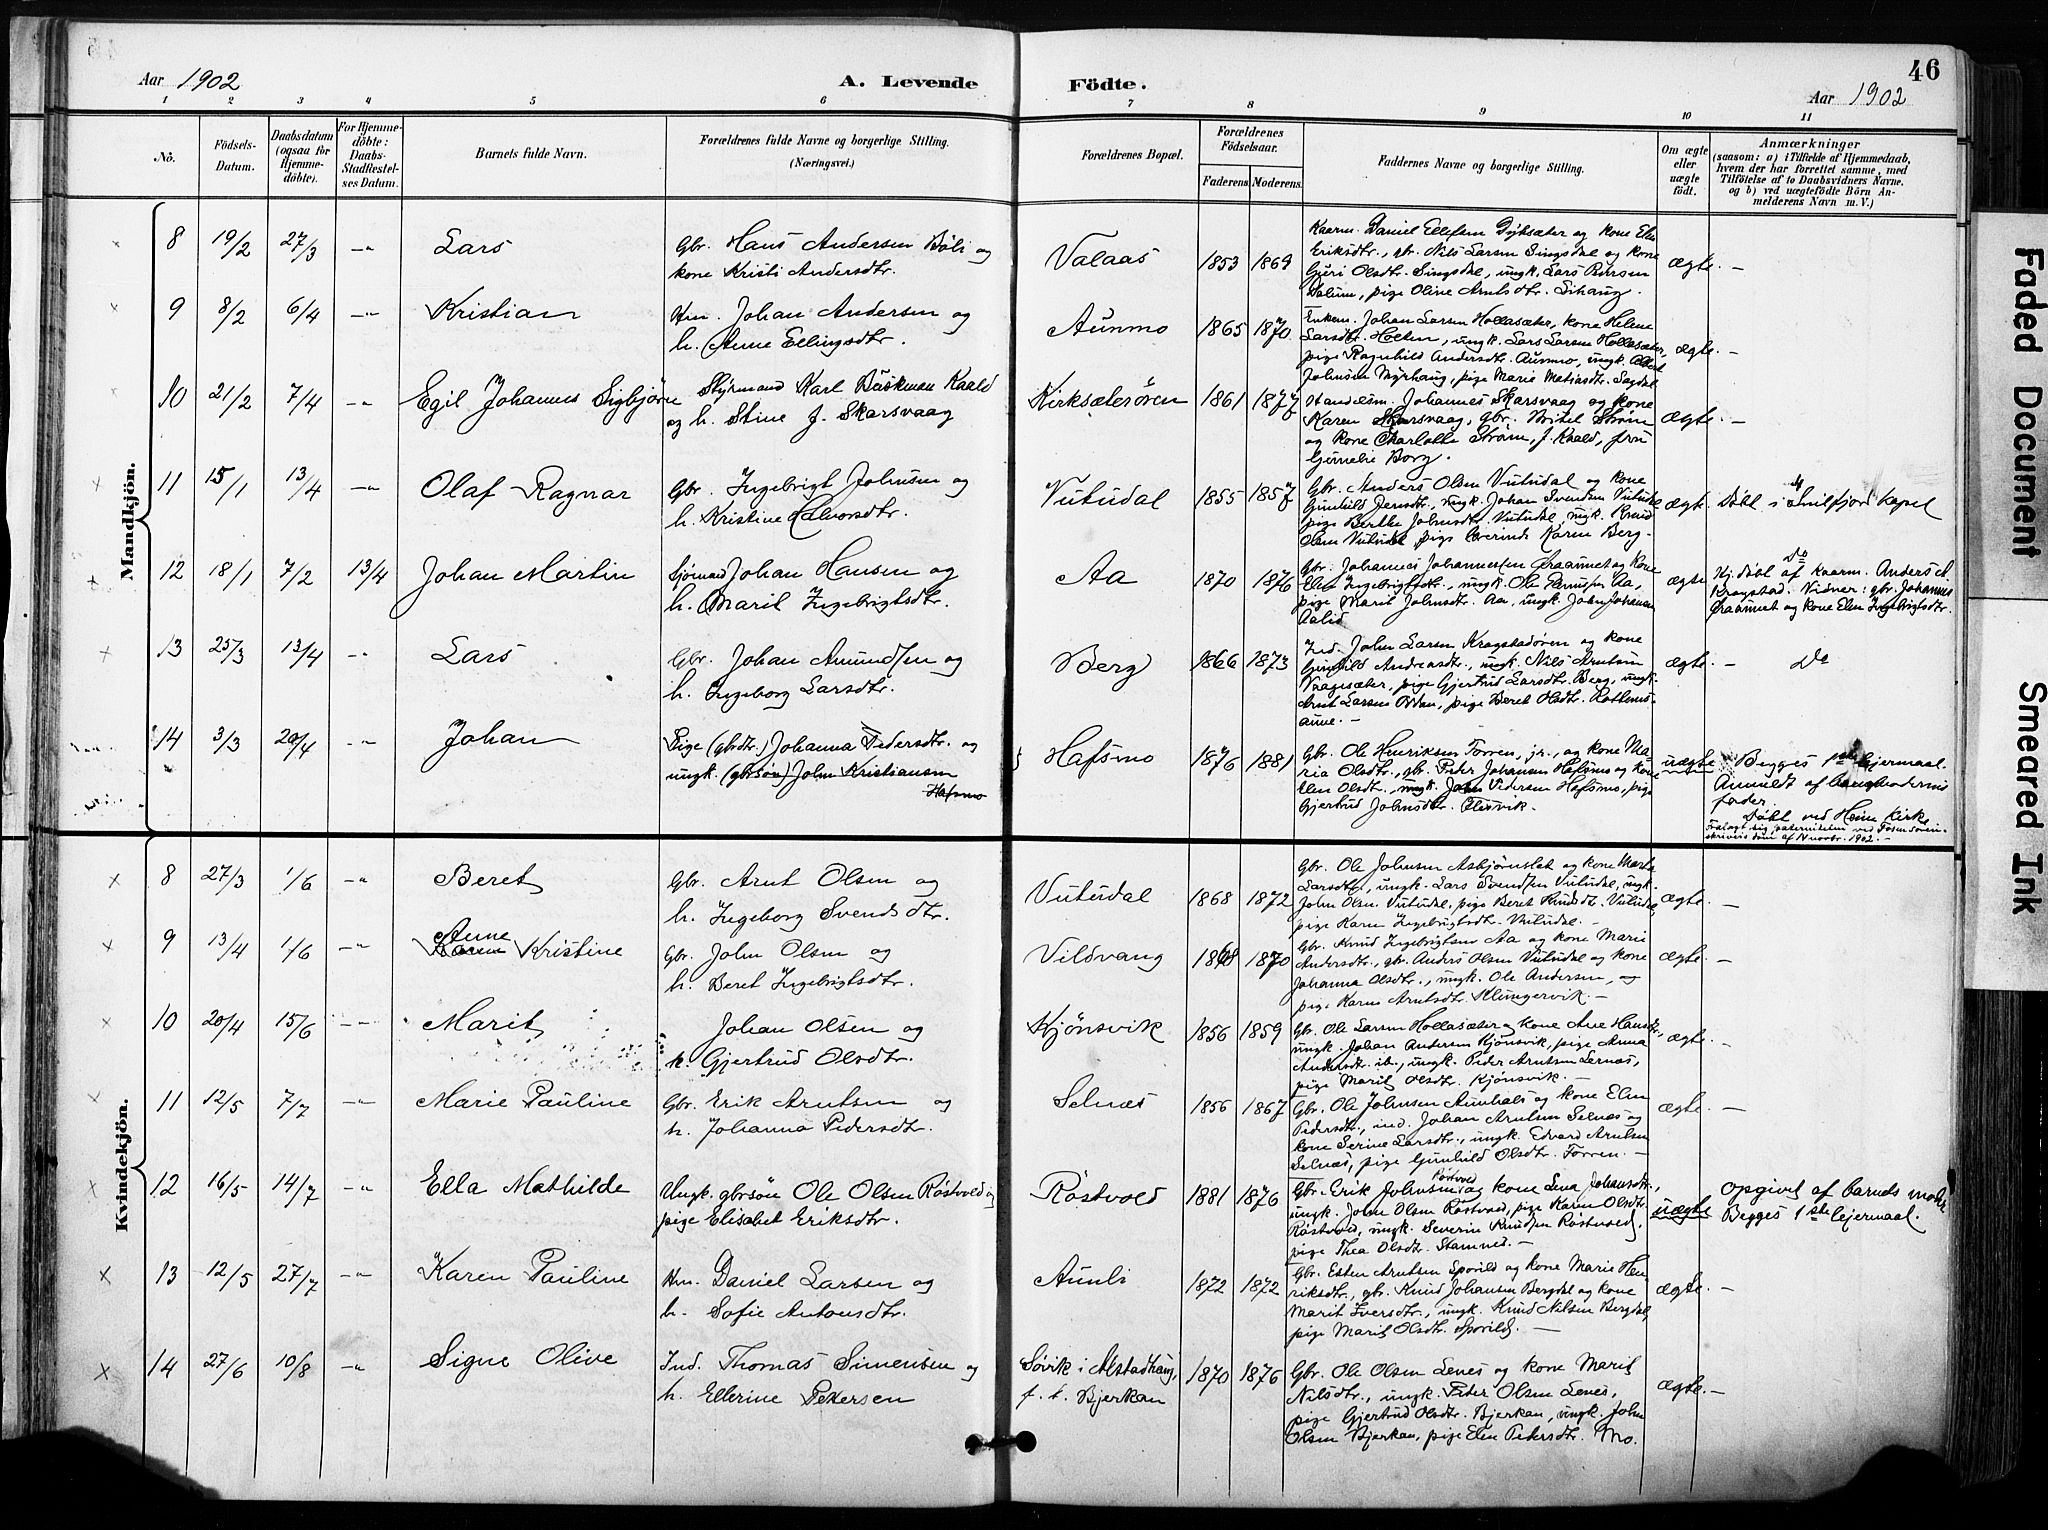 46
Aar 1902
A. Levende Födte.
Aar 1902
1 2 3 4 5 6 7 8 9 10 11
No.
Födsels-Datum.
Daabsdatum (ogsaa for Hjemme-döbte).
For Hjemme-döbte: Daabs-Stadfæstel-ses Datum.
Barnets fulde Navn.
Forældrenes fulde Navne og borgerlige Stilling. (Næringsvei.)
Forældrenes Bopæl.
Forældrenes Födselsaar.
Faderens Moderens.
Faddernes Navne og borgerlige Stilling.
Om ægte eller uægte födt.
Anmærkninger
(saasom: a) i Tilfælde af Hjemmedaab,
hvem der har forrettet samme, med
Tilföielse af to Daabsvidners Navne.
og b) ved uægtefödte Börn An-
melderens Navn m. V.)
Mandkjön.
8 19/2 27/3 -"- Lars
Gbr. Hans Andersen Böli og
kone Kristi Andersdtr.
Valaas 1853 1869
Kaarm. Daniel Ellefsen Dybsæter og kone Elen
Eriksdtr., gbr. Nils Larsen Singsdal og kone
Guri Olsdtr. Singsdal, ungk. Lars
pige Oline Arntsdtr.
ægte. —
9 8/2 6/4 -"- Kristian
Hm. Johan Andersen og
h. Anne Ellingsdtr.
Aunmo 1865 1870
Enkem. Johan Larsen Hollasæter, kone Helene
Larsdtr. Holten, ungk. Lars Larsen Hollasæter,
pige Ragnhild Andersdtr. Aunmo, ungk.
Johnsen Myrhaug, pige Marie Matiasdtr. Sagdal
ægte. —
10 21/2 7/4 -"- Egil Johannes Sigbjörn
Styrmand Karl Buckman Kaald
og h. Stine J. Skarsvaag
Kirksætersören 1861 1877
Standsm. Johannes Skarsvaag og kone
Karen Skarsvaag, gbr. Ström
og kone Charlotte Ström, J. Kaald, fru
Borg.
ægte. —
11 15/1 13/4 -"- Olaf Ragnar
Gbr. Ingebrigt Johnsen og
h. Kristine Halvorsdtr.
Vutudal 1855 1857
Gbr. Anders Olsen Vutudal og kone
Gunhild Jensdtr., ungk. Johan Svendsen Vutudal
pige Berthe Johnsdtr. Vutudal, ungk. Knud
Olsen Vutudal, pige Karen Berg.
ægte. Döbt i Snilfjord Kapel
12 18/1 7/2 13/4 Johan Martin
Sjömand Johan Hansen og
h. Marit Ingebrigtsdtr.
Aa 1870 1876
Gbr. Johannes Johannessen Graamet og kone
Elen Ingebrigtsdtr., ungk. Ole Aa,
pige Marit Johnsdtr. Aa, ungk. John Johansen
Aalid
ægte Do
Hj. döbt af kaarm. Anders
Kragstad. Vidner: gbr. Johannes
Graamet og kone Elen Ingebrigtsdtr.
13 25/3 13/4 -"- Lars
Gbr. Johan Amundsen og
h. Ingeborg Larsdtr.
Berg 1866 1873
Ind. John Larsen Kragstadören og kone
Gunhild Andreasdtr., ungk. Nils Arntsen
Vaagesæter, pige Gjertrud Larsdtr. Berg, ungk.
Arnt Larsen, pige Beret Olsdtr.
ægte. — Do
14 3/3 20/4 -"- Johan
Pige (gbrdtr.) Johanna Pedersdtr. og
ungk. (gbrsön) John Kristiansen
Hafsmo
Hafsmo 1876 1881
Gbr. Ole Henriksen Forren, jr., og kone Ma-
ria Olsdtr., gbr. Peder Johansen Hafsmo og kone
Elen Olsdtr., ungk. John Pedersen Hafsmo, pige
Gjertrud Johnsdtr.
uægte Begges 1ste leiermaal.
Anmeldt af barnemoderens
fader.
Döbt ved Heim Kirke
Kvindekjön.
8 27/3 1/6 -"- Beret
Gbr. Arnt Olsen og
h. Ingeborg Svendsdtr.
Vutudal 1868 1872
Gbr. Ole Johnsen Asbjönslet og kone Marit
Larsdtr., ungk. Lars Svendsen Vutudal, ungk.
John Olsen Vutudal, pige Beret Knudsdtr. Vutudal,
pige Karen Ingebrigtsdtr. Vutudal. —
ægte. —
9 13/4 1/6 -"- Anne
Karen Kristine
Gbr. John Olsen og
h. Beret Ingebrigtsdtr.
Vildvang 1868 1870
Gbr. Knud Ingebrigtsen Aa og kone Marie
Andersdtr., gbr. Anders Olsen Vutudal og kone
Johanna Olsdtr., ungk. Ole Andersen, og
pige Karen Arntsdtr. Klungervik. —
ægte. —
10 20/4 15/6 -"- Marit
Johan Olsen og
k. Gjertrud Olsdtr.
Kjönsvik 1856 1859
Gbr. Ole Larsen Hollasæter og kone Ane Hansdtr.,
ungk. Johan Andersen Kjönsvik, pige Anna
Andersdtr. ib., ungk. Peder Arntsen Lernes,
pige Marit Olsdtr. Kjönsvik. —
ægte. —
11 12/5 7/7 -"- Marie Pauline
Gbr. Erik Arntsen og
h. Johanna Pedersdtr.
Selnæs 1856 1867
Gbr. Ole Johnsen Aunhals og kone Elen
Pedersdtr., ind. Johan Arntsen Selnæs og
kone Serine Larsdtr., ungk. Edvard Arntsen
Selnæs, pige Gunhild Olsdtr. Forren. —
ægte. —
12 16/5 14/7 -"- Ella Mathilde
Ungk. gbrsön Ole Olsen Röstvold og
pige Elisabet Eriksdtr.
Röstvold 1881 1876
Röstvold
Gbr. Erik Johnsen og kone Lena Johansdtr.,
ungk. John Olsen Röstvold, pige Karen Olsdtr.
Röstvold, ungk. Severin Knudsen Röstvold,
pige Thea Olsdtr. Stamnes. —
uægte Opgivet af barnets moder.
Begges 1ste leiermaal.
13 12/5 27/7 -"- Karen Pauline
Hm. Daniel Larsen og
h. Sofie Antonsdtr.
Aunli 1872 1872
Gbr. Esten Arntsen Sporild og kone Marie Hen-
riksdtr., gbr. Knud Johansen Bergdal og kone
Marit Iversdtr., ungk. Knud Nilsen Bergdal,
pige Marit Olsdtr. Sporild. —
ægte. —
14 27/6 10/8 -"- Signe Olive
Ind. Thomas Simensen og
h. Ellerine Pedersen
Sövik i Alstadhaug,
f. t. Bjerkan 1870 1876
Gbr. Ole Olsen Lenes og kone Marit
Nilsdtr., ungk. Peter Olsen Lenes,
pige Gjertrud Olsdtr. Bjerkan, ungk. John
Olsen Bjerkan, pige Elen Pedersdtr. Mo.
ægte. —
Faded Document
Smeared Ink